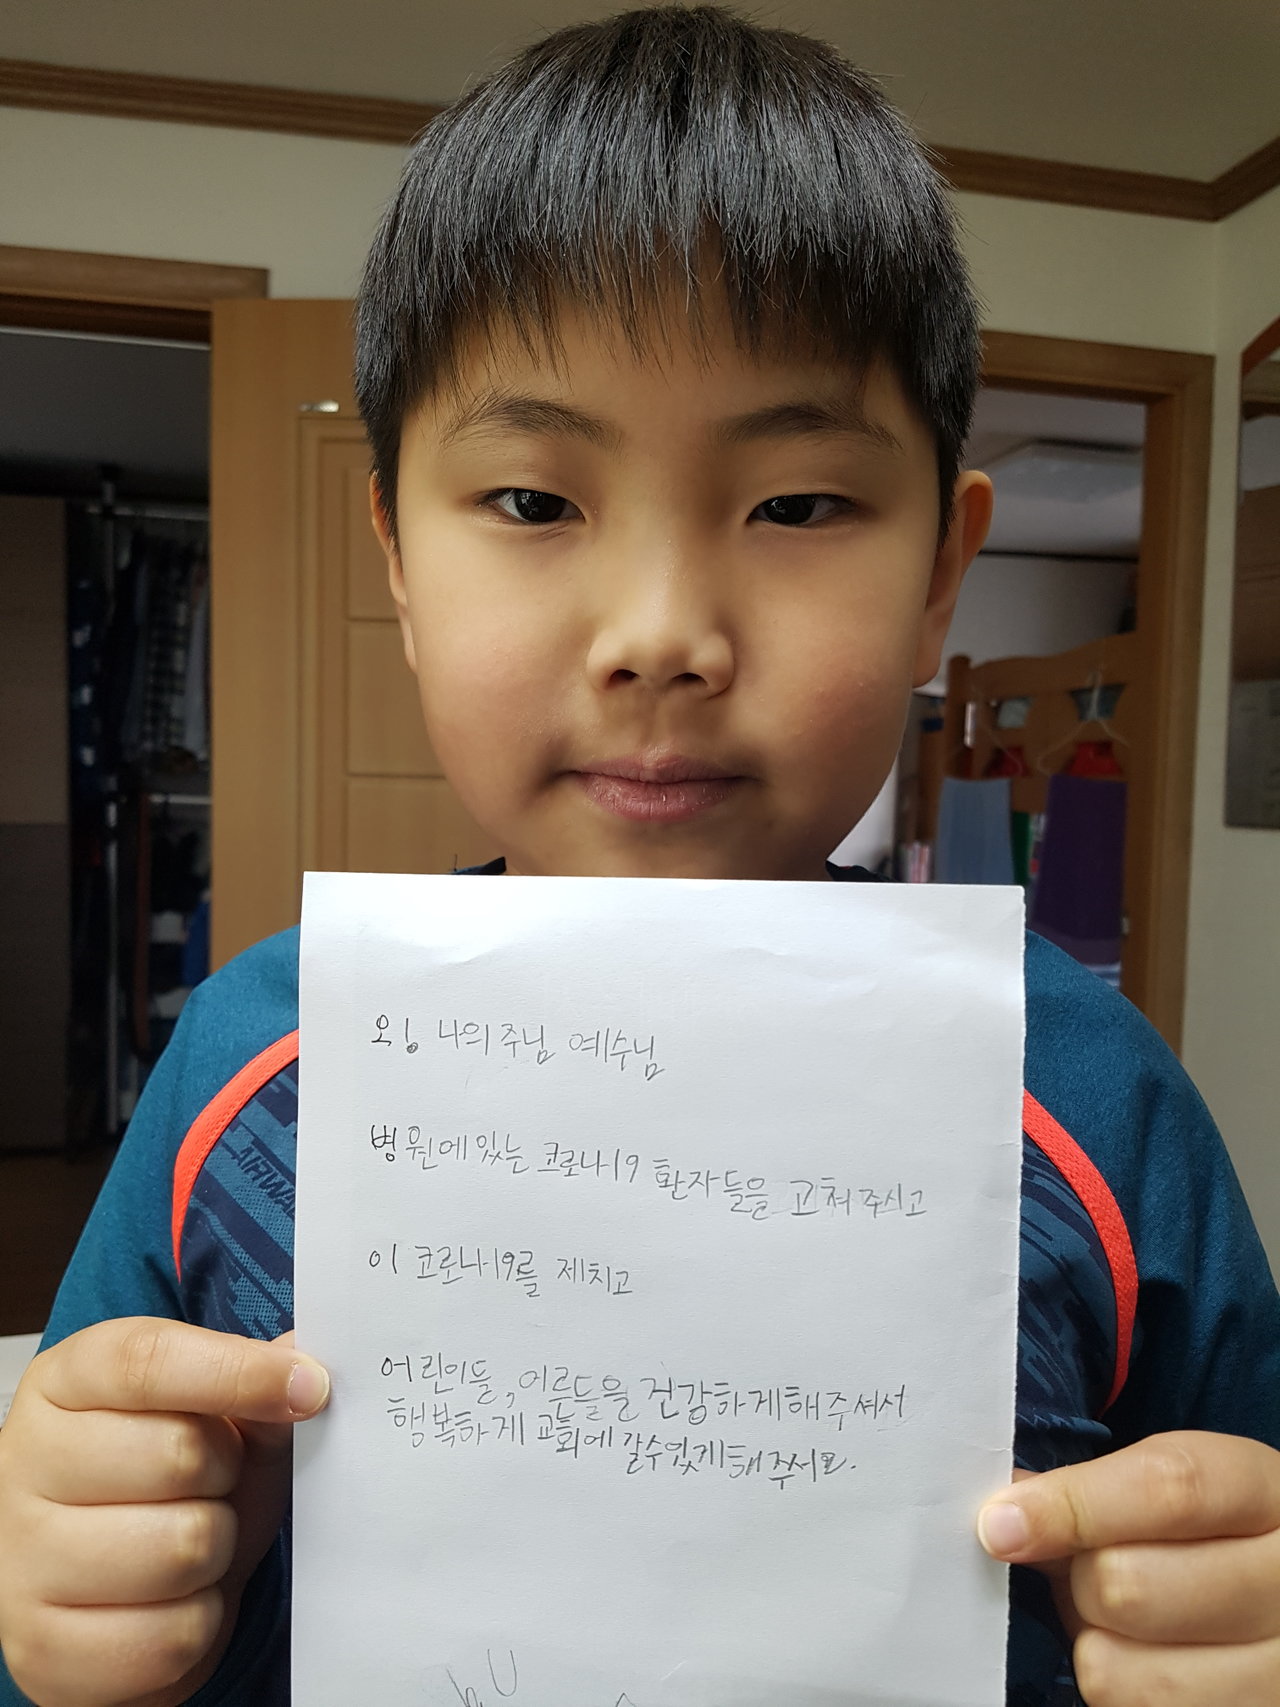 오! 나의 주님 예수님
병원에 있는 코로나19 환자들을 고쳐 주시고
이 코로나19를 제치고
어린이들, 어른들을 건강하게 해 주셔서
행복하게 교회에 갈수있게 해 주세요.